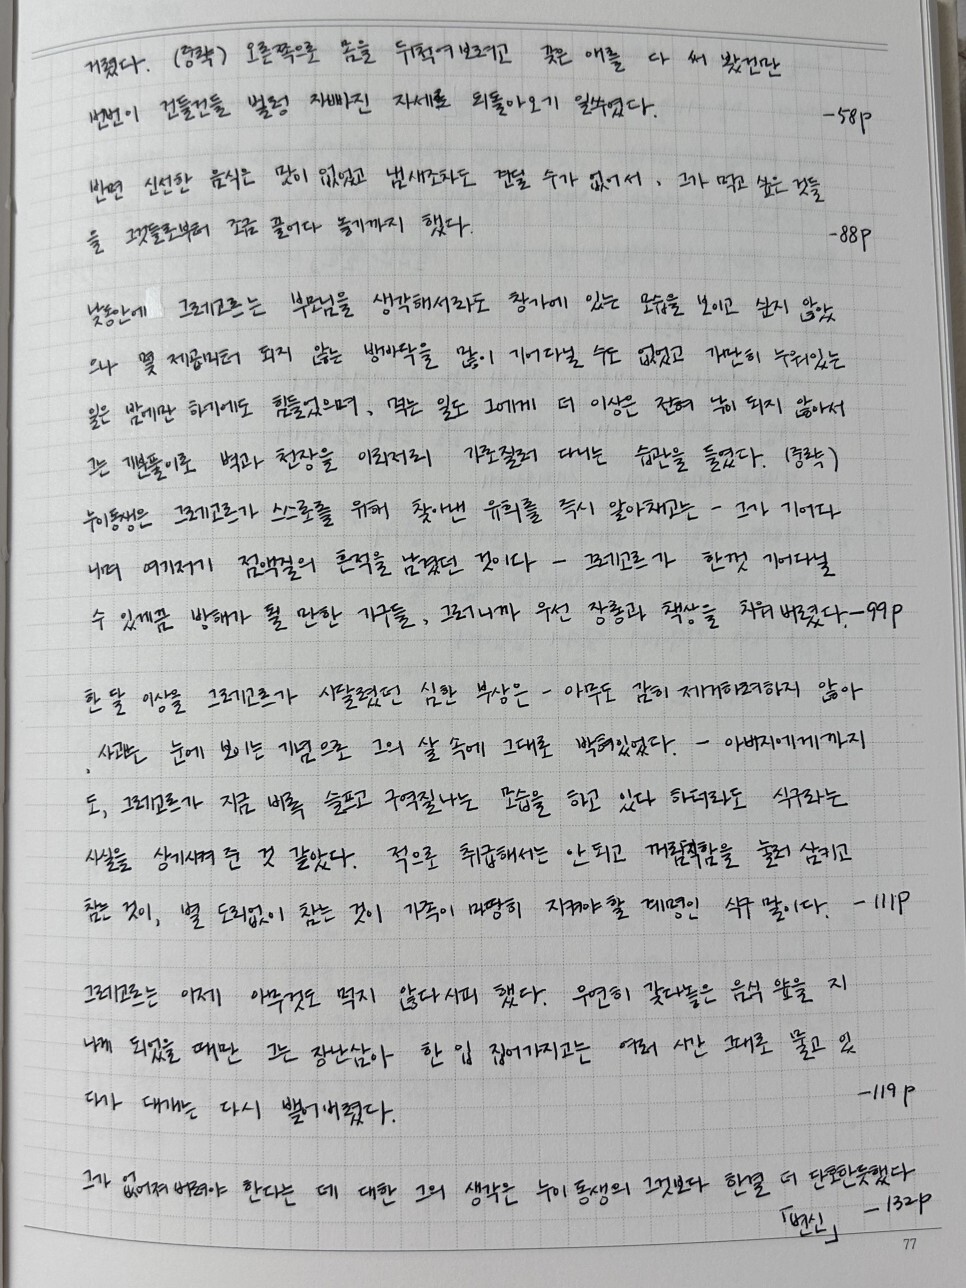 거렸다. (중략) 오른쪽으로 몸을 뒤척여보려고 갖은 애를 다 써 봤건만
번번이 건들건들 벌렁 자빠진 자세로 되돌아오기 일쑤였다. -58p
반면 신선한 음식은 맛이 없었고 냄새조차도 견딜 수가 없어서, 그가 먹고 싶은 것들
을 그것들로부터 조금 끌어다 놓기까지 했다. -88p
낮동안에 그레고르는 부모님을 생각해서라도 창가에 있는 모습을 보이고 싶지 않았
으나 몇 제곱미터 되지 않는 방바닥을 많이 기어다닐 수도 없었고 가만히 누워있는
일은 밤에만 하기에도 힘들었으며, 먹는 일도 그에게 더 이상은 전혀 낙이 되지 않아서
그는 기분풀이로 벽과 천장을 이리저리 가로질러 다니는 습관을 들였다. (중략)
누이동생은 그레고르가 스스로를 위해 찾아낸 유희를 즉시 알아채고는 - 그가 기어다
니며 여기저기 점액질의 흔적을 남겼던 것이다 - 그레고르가 한껏 기어다닐
수 있게끔 방해가 될 만한 가구들, 그러니까 우선 장롱과 책상을 치워버렸다. -99p
한 달 이상을 그레고르가 시달렸던 심한 부상은 - 아무도 감히 제거하려하지 않아
, 사과는 눈에 보이는 기념으로 그의 살 속에 그대로 박혀있었다. - 아버지에게까지
도, 그레고르가 지금 비록 슬프고 구역질나는 모습을 하고 있다 하더라도 식구라는
사실을 상기시켜 준 것 같았다. 적으로 취급해서는 안되고 꺼림칙함을 눌러 삼키고
참는 것이, 별 도리없이 참는 것이 가족이 마땅히 지켜야할 계명인 식구 말이다. -111p
그레고르는 이제 아무것도 먹지 않다시피 했다. 우연히 갖다놓은 음식 옆을 지
나게 되었을 때만 그는 장난삼아 한 입 집어가지고는 여러 시간 그대로 물고 있
다가 대개는 다시 뱉어버렸다. -119p
그가 없어져버려야 한다는 데 대한 그의 생각은 누이동생의 그것보다 한결 더 단호한듯했다
「변신」 -132p
77